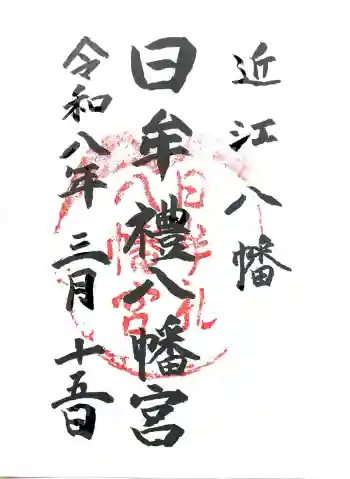 近江八幡
日牟禮八幡宮
令和八年三月十五日
日牟礼八幡宮